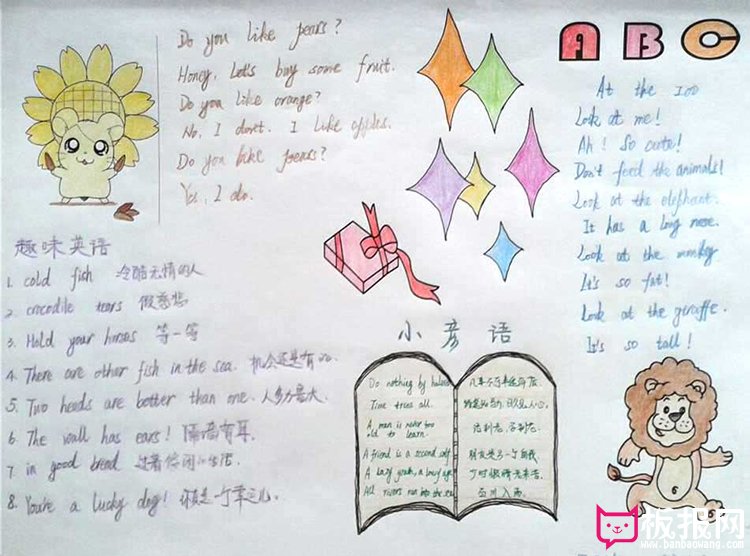 Do you like pears?
Honey, Let's buy some fruit.
Do you like orange?
No, I don't. I like apples.
Do you like pears?
Yes, I do.
ABC
At the zoo
Look at me!
Ah! So cute!
Don't feed the animals!
Look at the elephant.
It has a long nose.
Look at the monkey
It's so fat!
Look at the giraffe.
It's so tall!
趣味英语
1. cold fish 冷酷无情的人
2. crocodile tears 假慈悲
3. Hold your horses 等一等
4. There are other fish in the sea. 机会还是有的.
5. Two heads are better than one. 人多力量大
6. The wall has ears! 隔墙有耳.
7. in good bread 过着悠闲的生活
8. You're a lucky dog! 你真是一个幸运儿
小彦语
Do nothing by halves
Time trees all.
A man is never too
old to learn.
A friend is a second self
A lazy youth, a lousy age
All rivers run into the sea
凡事不可半途而废
日久见人心.
活到老, 学到老.
朋友是另一个自我
少时懒惰老来苦
百川入海
6
板报网
www.banbaowang.com